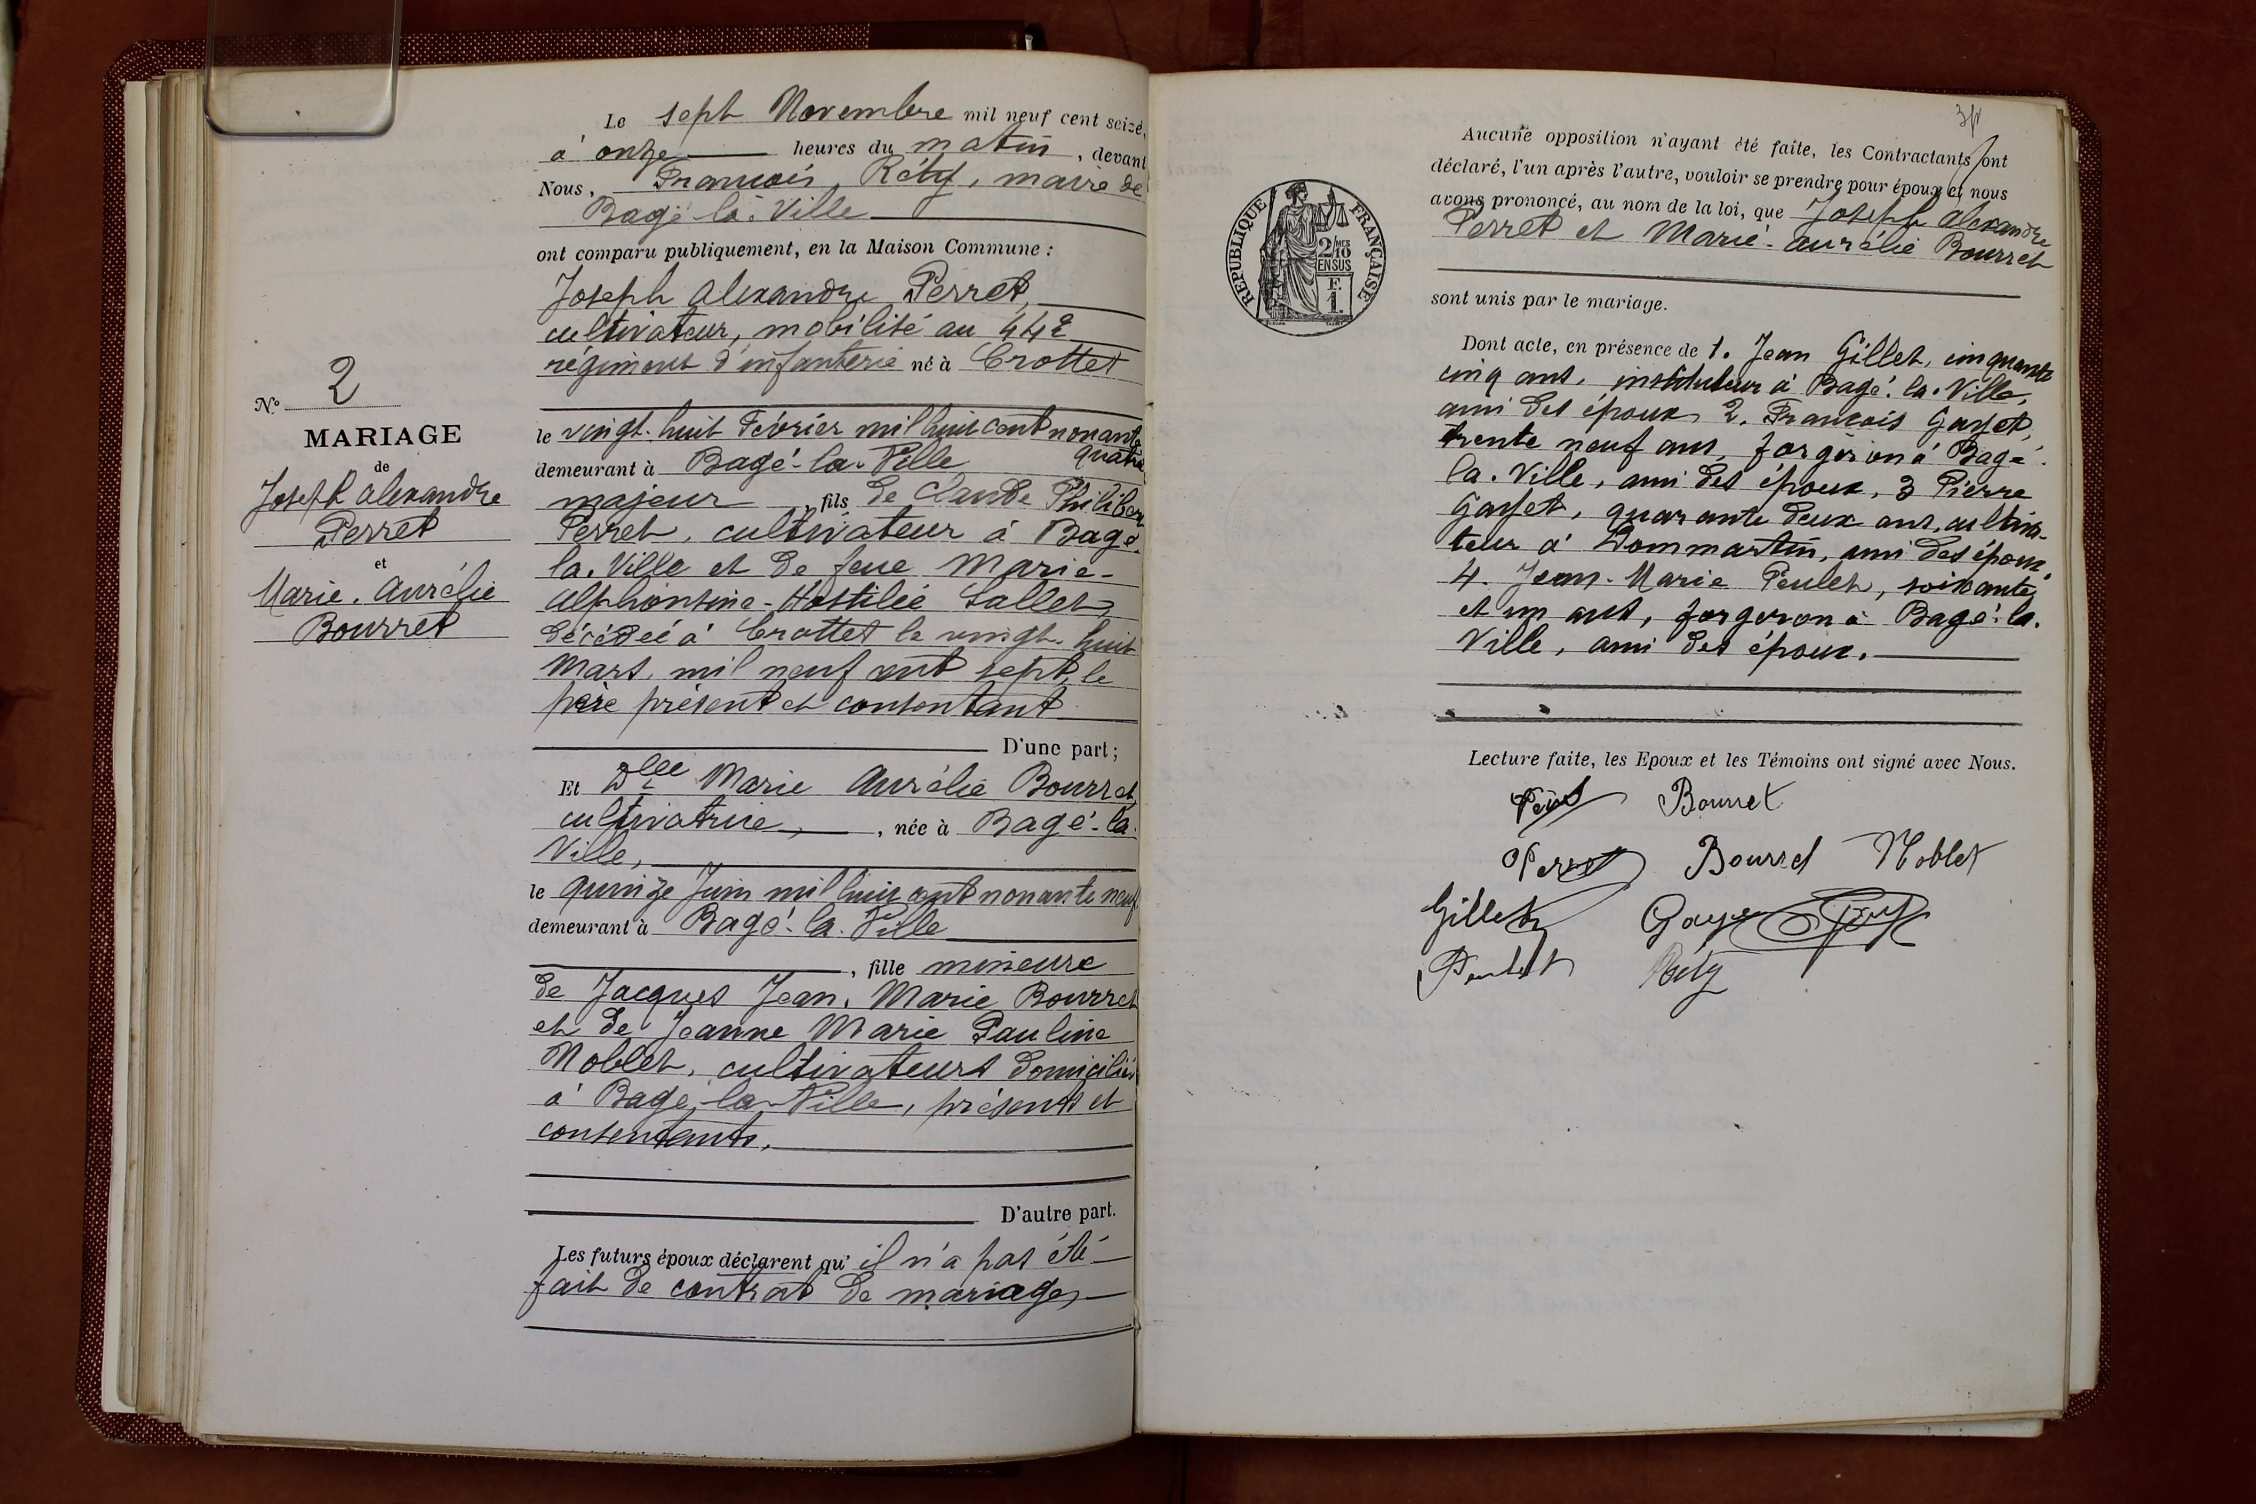 N.º 2
MARIAGE
de
Joseph Alexandre
Perret
et
Marie-Aurélie
Bourret
Le sept Novembre mil neuf cent seize,
à onze heures du matin, devant
Nous, François Réty, maire de
Bagé-la-Ville
ont comparu publiquement, en la Maison Commune :
Joseph Alexandre Perret,
cultivateur, mobilisé au 44e
régiment d'infanterie né à Crottet
le vingt-huit Février mil huit cent nonante
quatre
demeurant à Bagé-la-Ville
majeur, fils de Claude Philibert
Perret, cultivateur à Bagé-
la-Ville et de feue Marie-
Alphonsine-Hostilie Sallet
décédée à Crottet le vingt-huit
Mars mil neuf cent sept, le
père présent et consentant
D'une part ;
Et Dlle Marie Aurélie Bourret,
cultivatrice, née à Bagé-la-
Ville,
le quinze Juin mil huit cent nonante neuf
demeurant à Bagé-la-Ville
, fille mineure
de Jacques Jean-Marie Bourret
et de Jeanne Marie Pauline
Noblet, cultivateurs domiciliés
à Bagé-la-Ville, présents et
consentants,
D'autre part.
Les futurs époux déclarent qu'il n'a pas été
fait de contrat de mariage,
3fr
RÉPUBLIQUE FRANÇAISE
2/10 MES
EN SUS
F.
1.
Aucune opposition n'ayant été faite, les Contractants ont
déclaré, l'un après l'autre, vouloir se prendre pour époux et nous
avons prononcé, au nom de la loi, que Joseph Alexandre
Perret et Marie-Aurélie Bourret
sont unis par le mariage.
Dont acte, en présence de 1. Jean Gillet, cinquante
cinq ans, instituteur à Bagé-la-Ville,
ami des époux 2. François Gayet,
trente neuf ans, forgeron à Bagé-
la-Ville, ami des époux, 3 Pierre
Gayet, quarante deux ans, cultiva-
teur à Dommartin, ami des époux,
4. Jean-Marie Peulet, soixante
et un ans, forgeron à Bagé-la-
Ville, ami des époux.
Lecture faite, les Epoux et les Témoins ont signé avec Nous.
Bourret
Perret Bourret Noblet
Gillet Gayet
Peulet Réty